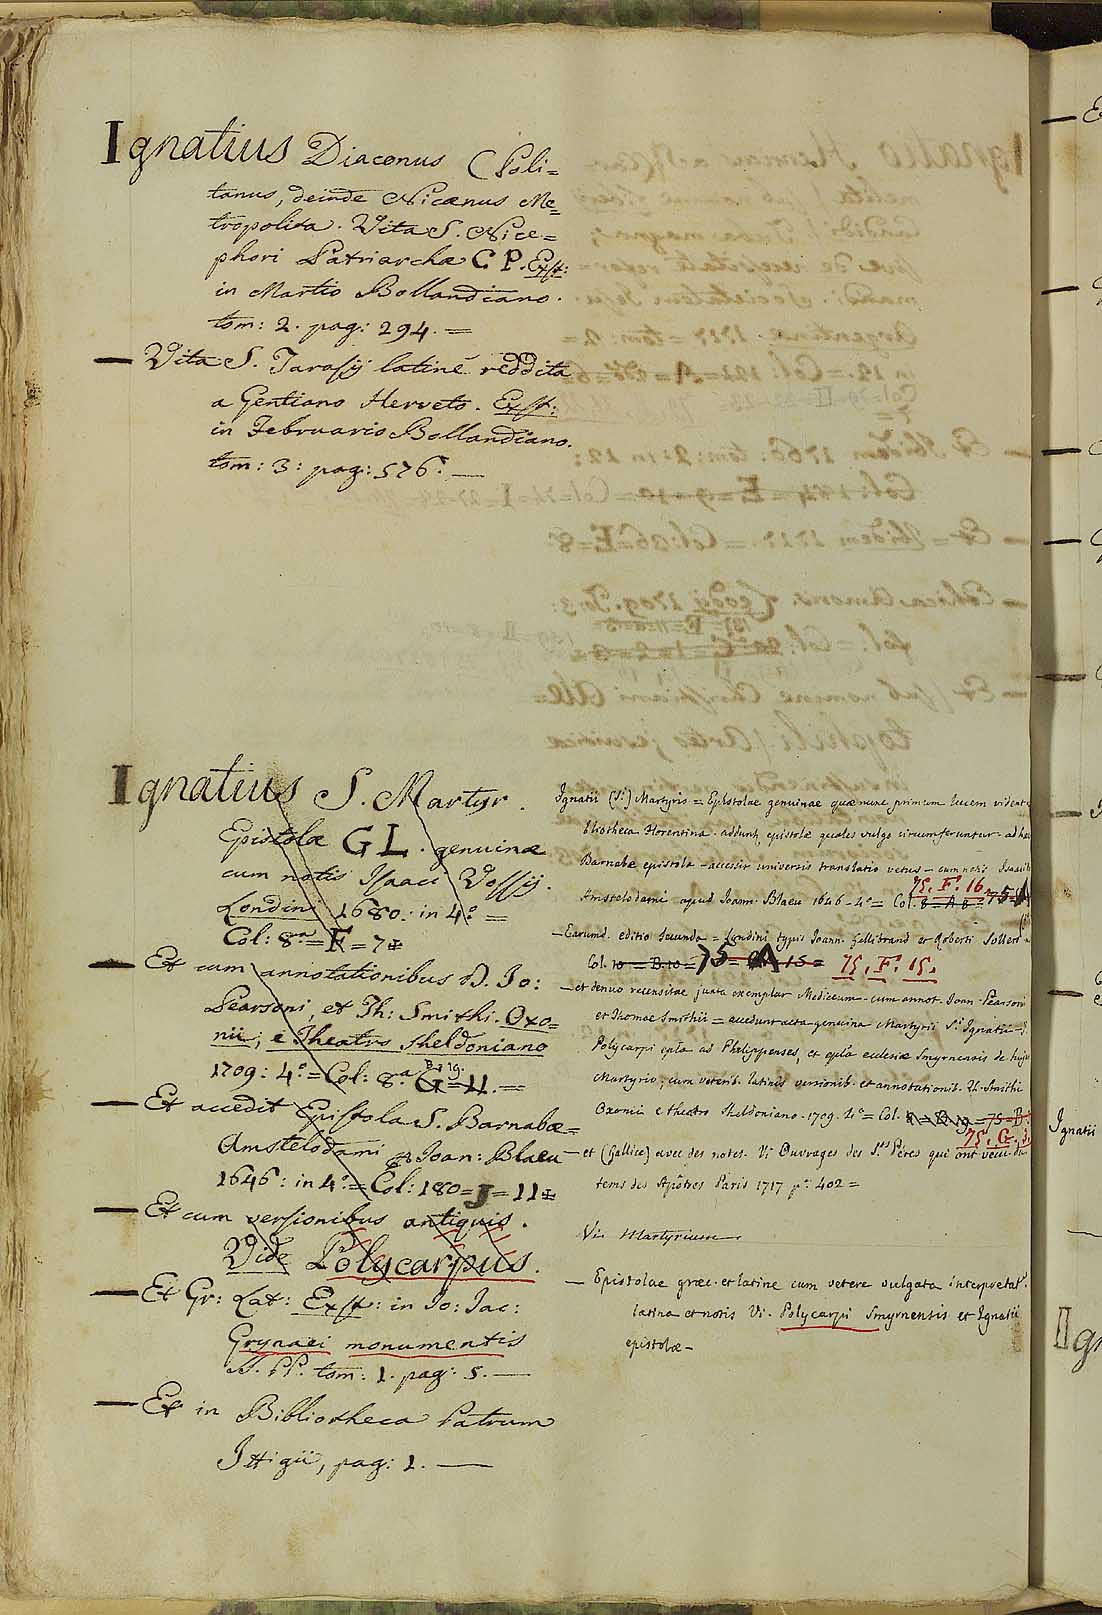 Ignatius Diaconus (Poli=
tanus, deinde Nicænus Me=
tropolita. Vita S. Nice=
phori Patriarchæ C P. Exst:
in Martio Bollandiano.
tom: 2. pag: 294. =
— Vita S. Tarasij latinè reddita
a Gentiano Herveto. Exst:
in Februario Bollandiano.
tom: 3: pag: 576. —
Ignatius S. Martyr.
Epistolæ G L. genuinæ
cum notis Isaaci Vossij.
Londini 1680. in 4º =
Col: 8.ª = F = 7
— Et cum annotationibus D. Jo:
Pearsoni, et Th: Smithi. Oxo=
nii; e Theatro Sheldoniano
B 19.
1709: 4.º = Col: 8.ª G = 11. —
— Et accedit Epistola S. Barnabæ =
Amstelodami Joan: Blaeu
1646: in 4.º = Col: 180 = J = 11
— Et cum versionibus antiquis.
Vide Polycarpus.
— Et Gr: Lat: Exst: in Jo: Jac:
Grynaei monumentis
S. PP. tom: 1. pag: 5. —
— Et in Bibliotheca Patrum
Ittigii, pag: 1. —
Ignatii (S.i) Martyris = Epistolae genuinae quae nunc primum lucem vident
bliotheca Florentina. addunt epistolæ quales vulgo circumferuntur. ad
Barnabæ epistola - accessit universis translatio vetus - cum notis Isaaci
75. F. 16.
Amstelodami apud Joann. Blaeu 1646 - 4º = Col. 8 = A 8 = 75
— Earumd. editio secunda = Londini typis Joann. Gellibrand et Roberti Sollers
Col. 10 = B. 10 = 75 = A 15 = 75. F. 15.
— et denuo recensitae juxta exemplar Mediceum. cum annot. Joan. Pearsoni
et Thomae Smithii = accedunt acta genuina Martyrii S.i Ignatii
Polycarpi epla ad Philippenses, et epla ecclesiæ Smyrnensis de
Martyrio; cum veterib. latinis versionib. et annotationib. Th. Smithi
Oxonii e theatro Sheldoniano. 1709. 4.º = Col. = 75 = B
75. G.
— et (Gallice) avec des notes. Vi Ouvrages des S.ts Pères qui ont vecu du
tems des Apôtres Paris 1717 p. 402 =
Vi. Martyrium
— Epistolae græc. et latine cum vetere vulgata interpretat.
latina et notis Vi. Polycarpi Smyrnensis et Ignatii
epistolæ -
Ignatii
Ign